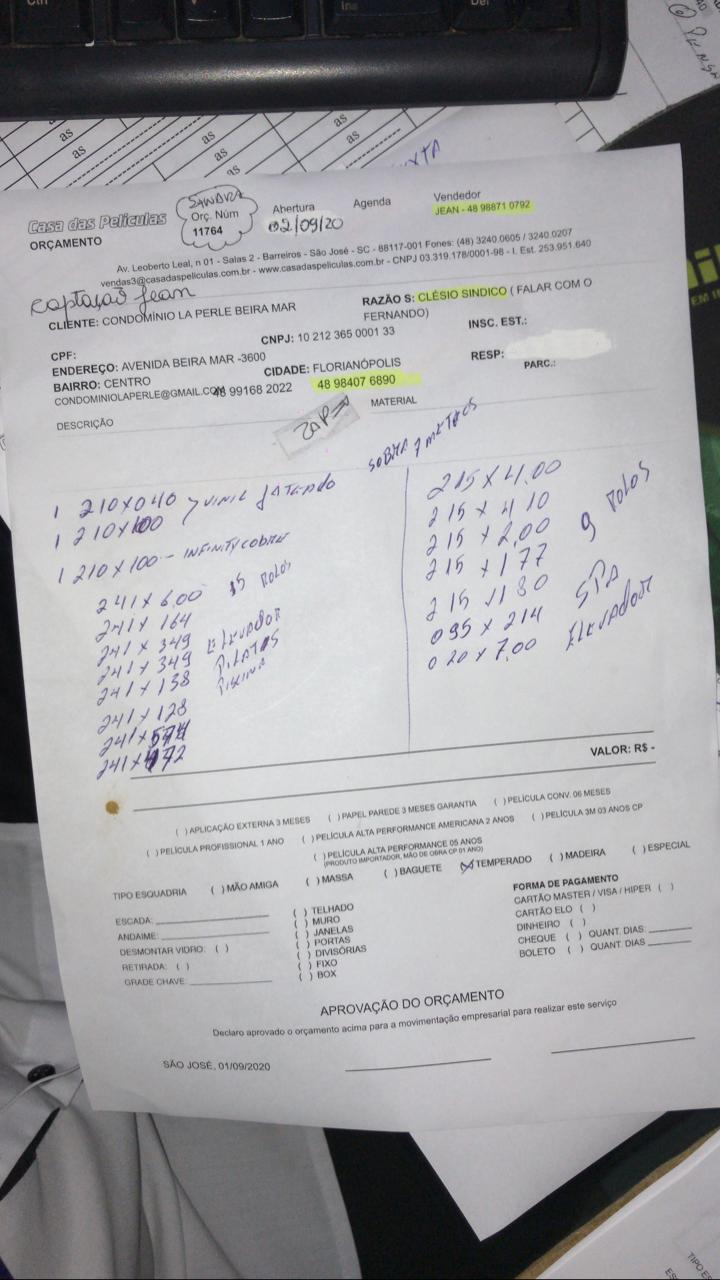 Ctrl
Ins
Del
as
as
as
as
as
as
as
as
Casa das Películas
ORÇAMENTO
SANDRA
Orç. Núm
11764
Abertura
02/09/20
Agenda
Vendedor
JEAN - 48 98871 0792
Av. Leoberto Leal, n 01 - Salas 2 - Barreiros - São José - SC - 88117-001 Fones: (48) 3240.0605 / 3240.0207
vendas3@casadaspeliculas.com.br - www.casadaspeliculas.com.br - CNPJ 03.319.178/0001-98 - I. Est. 253.951.640
captação Jean
CLIENTE: CONDOMÍNIO LA PERLE BEIRA MAR
RAZÃO S: CLÉSIO SINDICO ( FALAR COM O FERNANDO)
CPF:
CNPJ: 10 212 365 0001 33
INSC. EST.:
ENDEREÇO: AVENIDA BEIRA MAR -3600
BAIRRO: CENTRO
CIDADE: FLORIANÓPOLIS
RESP:
CONDOMINIOLAPERLE@GMAIL.COM
48 99168 2022
48 98407 6890
PARC.:
DESCRIÇÃO
MATERIAL
SOBRA 7 METROS
1 210 x 040
1 210 x 100
VINIL JATEADO
1 210 x 100 - INFINITY COBRE
241 x 6,00
241 x 164
241 x 349
241 x 349
241 x 138
241 x 128
241 x 574
241 x 472
15 ROLOS
ELEVADOR
PILATES
PISCINA
215 x 4,00
215 x 410
215 x 2,00
215 x 177
215 x 180
095 x 214
020 x 7,00
9 ROLOS
SPA
ELEVADOR
VALOR: R$ -
( ) APLICAÇÃO EXTERNA 3 MESES ( ) PAPEL PAREDE 3 MESES GARANTIA ( ) PELÍCULA CONV. 06 MESES
( ) PELÍCULA PROFISSIONAL 1 ANO ( ) PELÍCULA ALTA PERFORMANCE AMERICANA 2 ANOS ( ) PELÍCULA 3M 03 ANOS CP
( ) PELÍCULA ALTA PERFORMANCE 05 ANOS
(PRODUTO IMPORTADOR, MÃO DE OBRA CP 01 ANO)
TIPO ESQUADRIA ( ) MÃO AMIGA ( ) MASSA ( ) BAGUETE (X) TEMPERADO ( ) MADEIRA ( ) ESPECIAL
ESCADA:
ANDAIME:
DESMONTAR VIDRO: ( )
RETIRADA: ( )
GRADE CHAVE:
( ) TELHADO
( ) MURO
( ) JANELAS
( ) PORTAS
( ) DIVISÓRIAS
( ) FIXO
( ) BOX
FORMA DE PAGAMENTO
CARTÃO MASTER / VISA / HIPER ( )
CARTÃO ELO ( )
DINHEIRO ( )
CHEQUE ( ) QUANT. DIAS:
BOLETO ( ) QUANT. DIAS
APROVAÇÃO DO ORÇAMENTO
Declaro aprovado o orçamento acima para a movimentação empresarial para realizar este serviço
SÃO JOSÉ, 01/09/2020